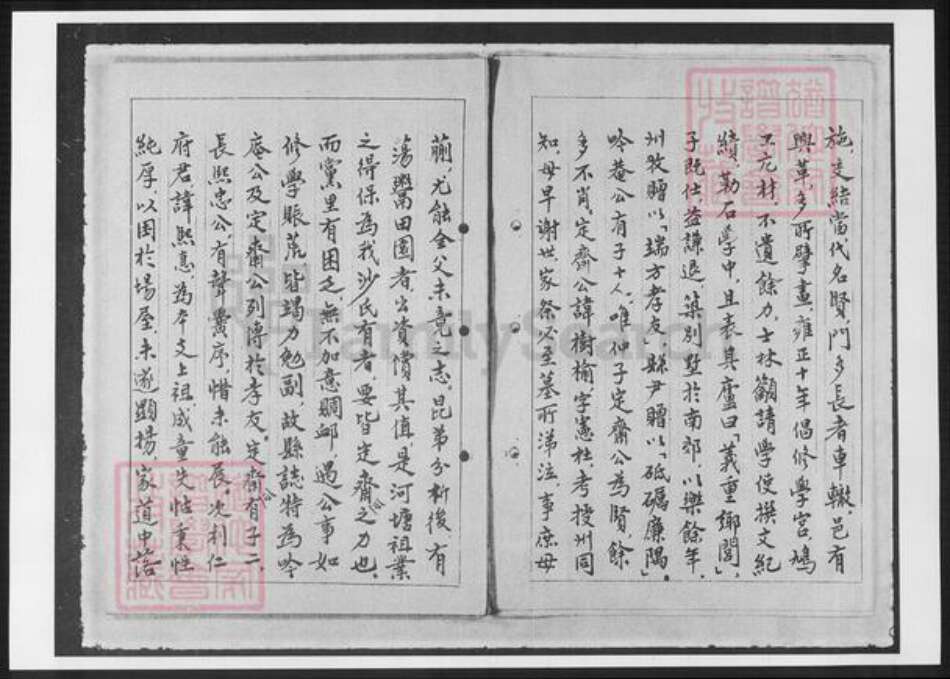 施，交結當代名賢，門多長者車轍，邑有
興革，多所擘畫，雍正十年倡修學宮，鳩
工庀材，不遺餘力，士林籲請學使撰文紀
績，勒石學中，且表其廬曰「義重鄉閭」，
子既仕益謙退，築別墅於南郊，以樂餘年，
州牧贈以「端方孝友」縣尹贈以「砥礪廉隅」。
吟菴公有子十人，唯仲子定齋公為賢，餘
多不肖，定齋公諱樹榆字憲社，考授州同
知，母早謝世家祭必至墓所涕泣，事庶母
蒯，尤能全父未竟之志。昆弟分析後，有
蕩鬻田園者，公貲償其值，是河塘祖業
之得保為我沙氏有者，要皆定齋公之力也，
而黨里有困乏，無不加意賙卹，遇公事如
修學賑荒，皆竭力勉副，故縣誌特為吟
菴公及定齋公列傳於孝友。定齋公有子二，
長熙忠公，有聲黌序，惜未能展，次利仁
府君，諱熙憙，為本支上祖，成童失怙秉性
純厚，以困於場屋，未遂顯揚，家道中落
FamilySearch